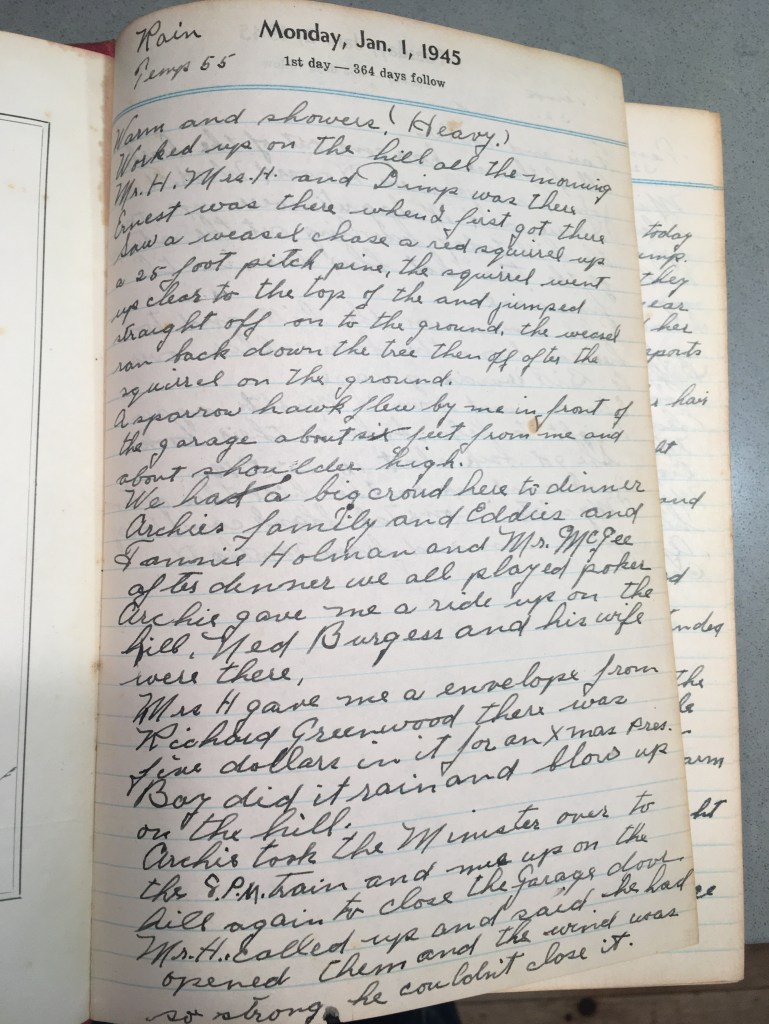 Rain
Temp 55
Monday, Jan. 1, 1945
1st day — 364 days follow
Warm and showers! (Heavy.)
Worked up on the hill all the morning
Mr. H. Mrs. H. and Dimp was there
Ernest was there when I first got there
saw a weasel chase a red squirrel up
a 25 foot pitch pine, the squirrel went
up clear to the top of the and jumped
straight off on to the ground. the weasel
ran back down the tree then off after the
squirrel on the ground.
A sparrow hawk flew by me in front of
the garage about six feet from me and
about shoulder high.
We had a big croud here to dinner
Archies family and Eddies and
Fannie Holman and Mr. McGee
after dinner we all played poker
Archie gave me a ride up on the
hill, Ned Burgess and his wife
were there,
Mrs H gave me a envelope from
Richard Greenwood there was
five dollars in it for an Xmas pres.
Boy did it rain and blow up
on the hill.
Archie took the Minister over to
the 8.P.M. train and me up on the
hill again to close the garage door
Mr. H. called up and said he had
opened them and the wind was
so strong he couldn't close it.
today
they
her
hair
and
the